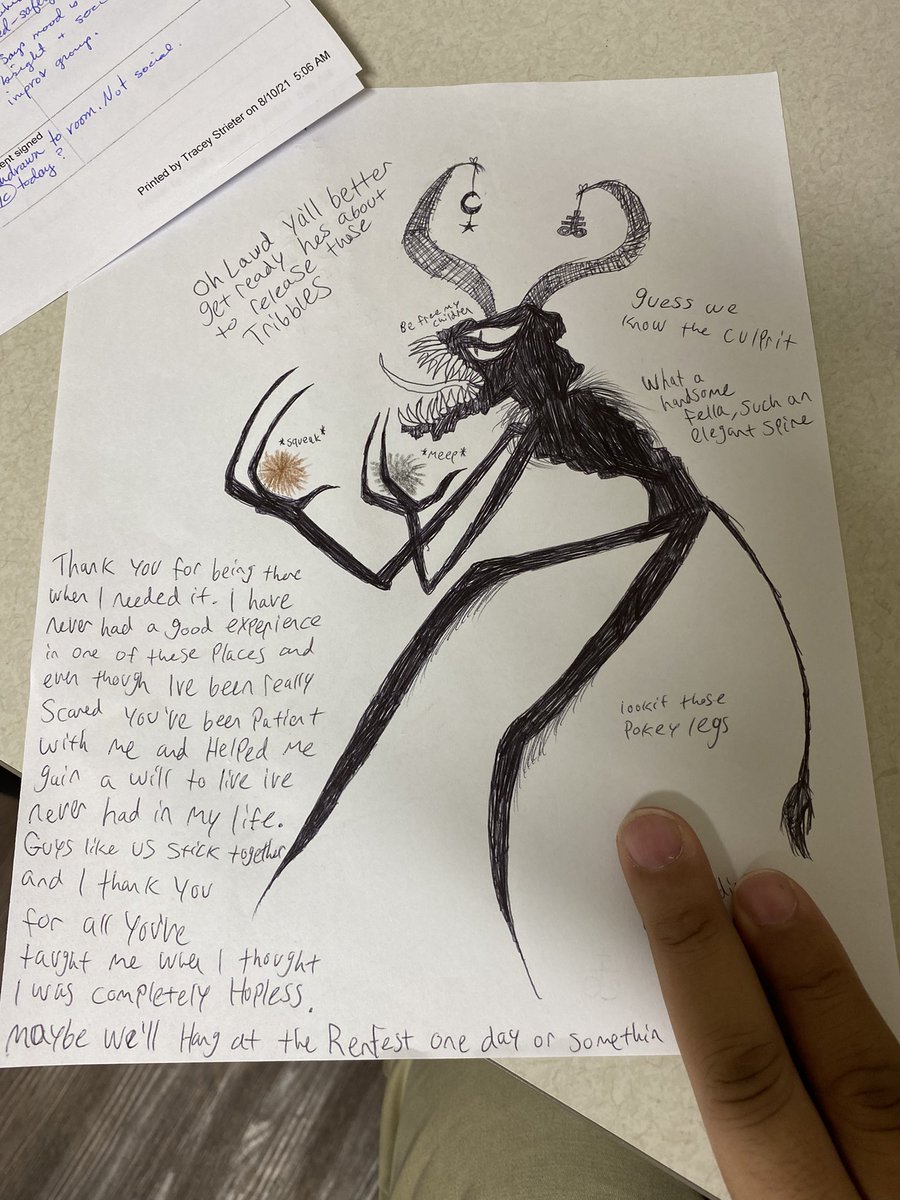 Says mood is
bright + soci
improv group.
ent signed
drawn to room. Not social.
today?
Printed by Tracey Strieter on 8/10/21 5:06 AM
Oh Lawd Yall better
get ready hes about
to release those
Tribbles
Be free my
children
guess we
know the culprit
What a
handsome
Fella, such an
elegant Spine
*squeak*
*Meep*
lookit those
Pokey legs
Thank You for being there
when I needed it. I have
never had a good experience
in one of these Places and
even though Ive been really
Scared You've been Patient
with me and Helped me
gain a will to live ive
never had in my life.
Guys like us stick together
and I thank You
for all You've
taught me when I thought
I was completely Hopless.
Maybe We'll Hang at the Renfest one day or somethin